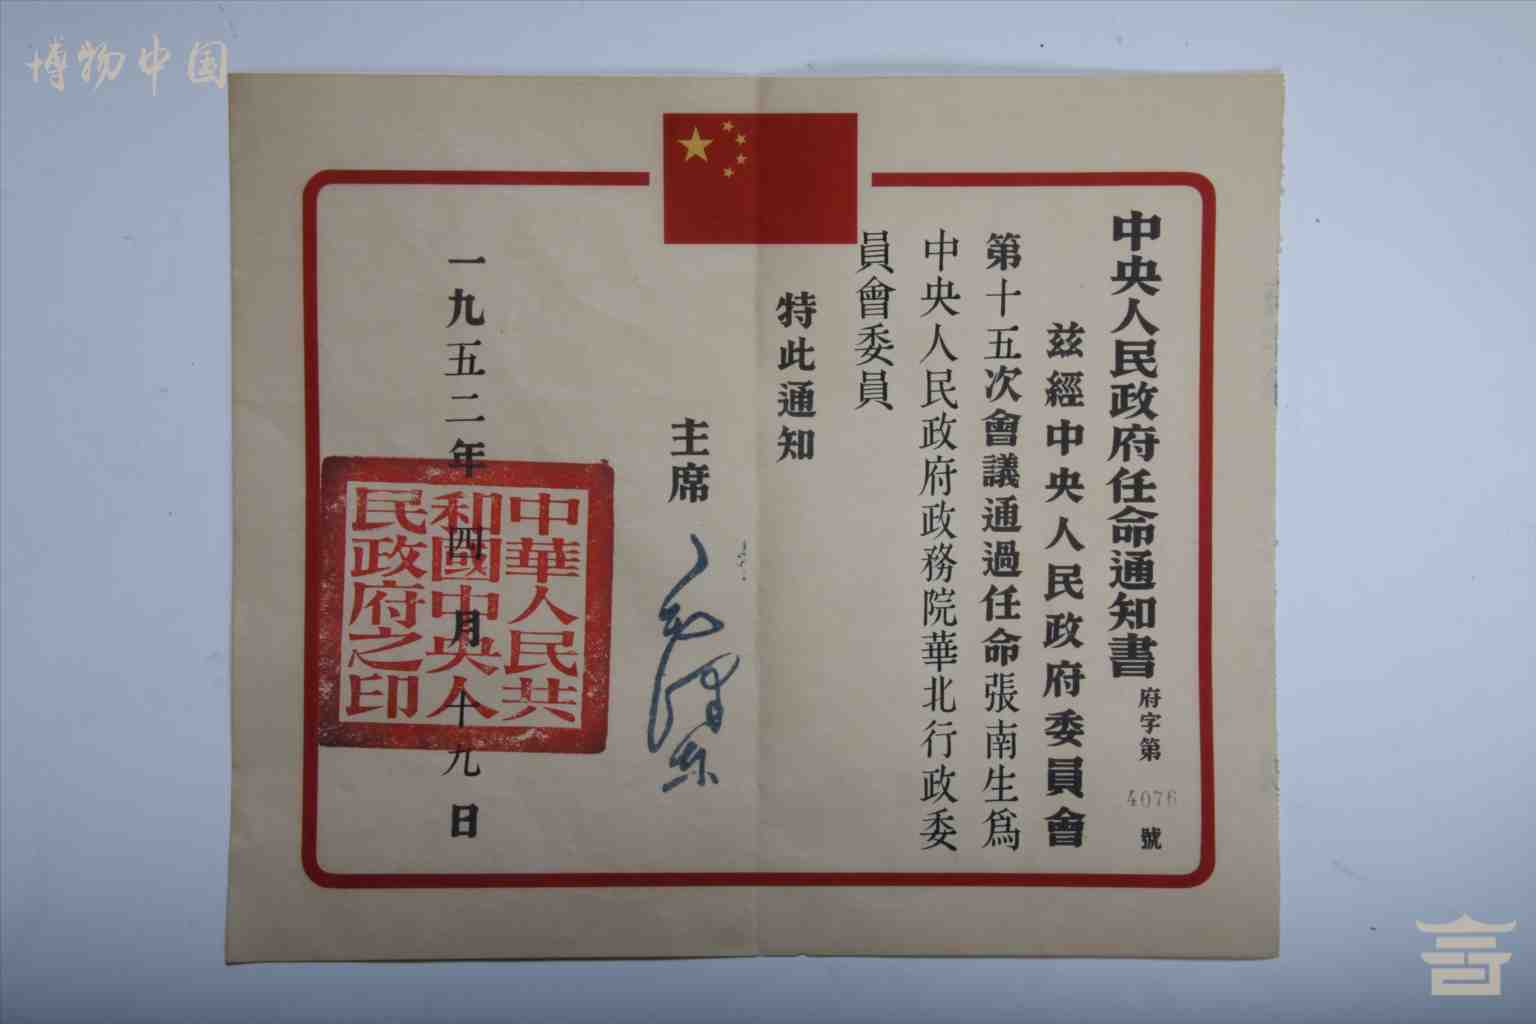 博物中国
中央人民政府任命通知書
府字第4076號
兹經中央人民政府委員會
第十五次會議通過任命張南生爲
中央人民政府政務院華北行政委
員會委員
特此通知
主席
毛澤东
一九五二年四月十九日
中華人民共
和國中央人
民政府之印